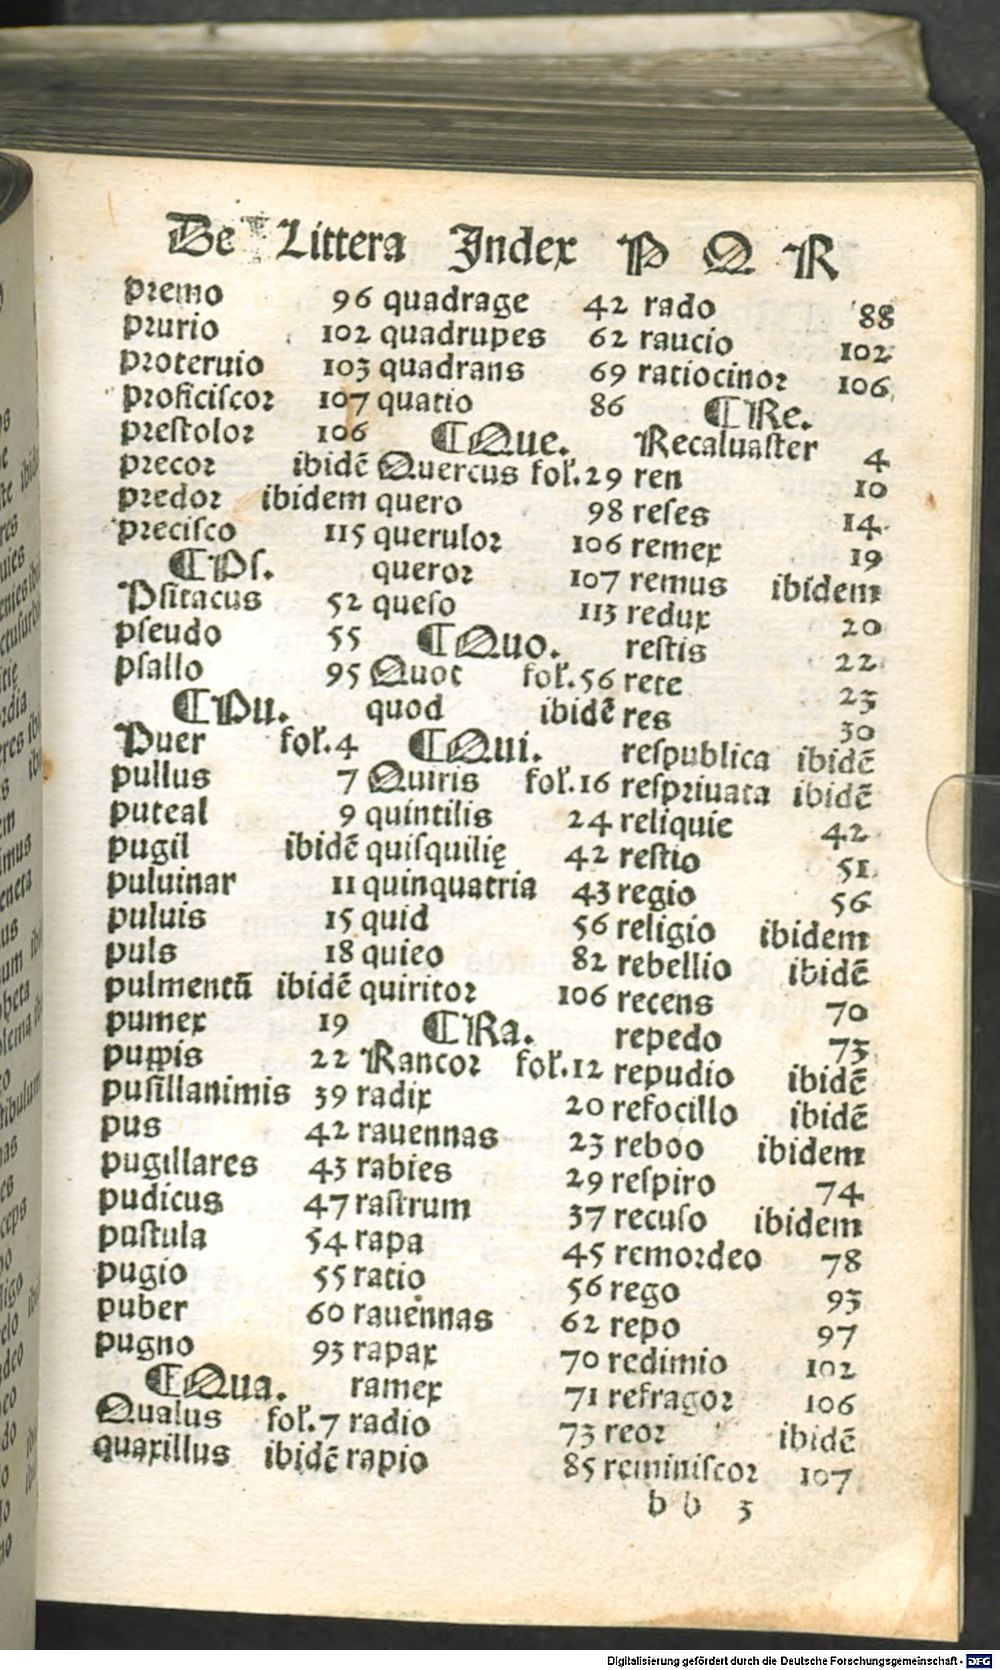 De Littera Index P Q R
premo 96
prurio 102
proteruio 103
proficiscor 107
prestolor 106
precor ibidē
predor ibidem
precisco 115
¶Ps.
Psitacus 52
pseudo 55
psallo 95
¶Pu.
Puer fol.4
pullus 7
puteal 9
pugil ibidē
puluinar 11
puluis 15
puls 18
pulmentū ibidē
pumex 19
puppis 22
pusillanimis 39
pus 42
pugillares 43
pudicus 47
pustula 54
pugio 55
puber 60
pugno 93
¶Qua.
Qualus fol.7
quaxillus ibidē
quadrage 42
quadrupes 62
quadrans 69
quatio 86
¶Que.
Quercus fol.29
quero 98
querulor 106
queror 107
queso 113
¶Quo.
Quot fol.56
quod ibidē
¶Qui.
Quiris fol.16
quintilis 24
quisquilię 42
quinquatria 43
quid 56
quieo 82
quiritor 106
¶Ra.
Rancor fol.12
radix 20
rauennas 23
rabies 29
rastrum 37
rapa 45
ratio 56
rauennas 62
rapax 70
ramex 71
radio 73
rapio 85
rado 88
raucio 102
ratiocinor 106
¶Re.
Recaluaster 4
ren 10
reses 14
remex 19
remus ibidem
redux 20
restis 22
rete 23
res 30
respublica ibidē
respriuata ibidē
reliquie 42
restio 51
regio 56
religio ibidem
rebellio ibidē
recens 70
repedo 73
repudio ibidē
refocillo ibidē
reboo ibidem
respiro 74
recuso ibidem
remordeo 78
rego 93
repo 97
redimio 102
refragor 106
reor ibidē
reminiscor 107
b b 3
Digitalisierung gefördert durch die Deutsche Forschungsgemeinschaft - DFG